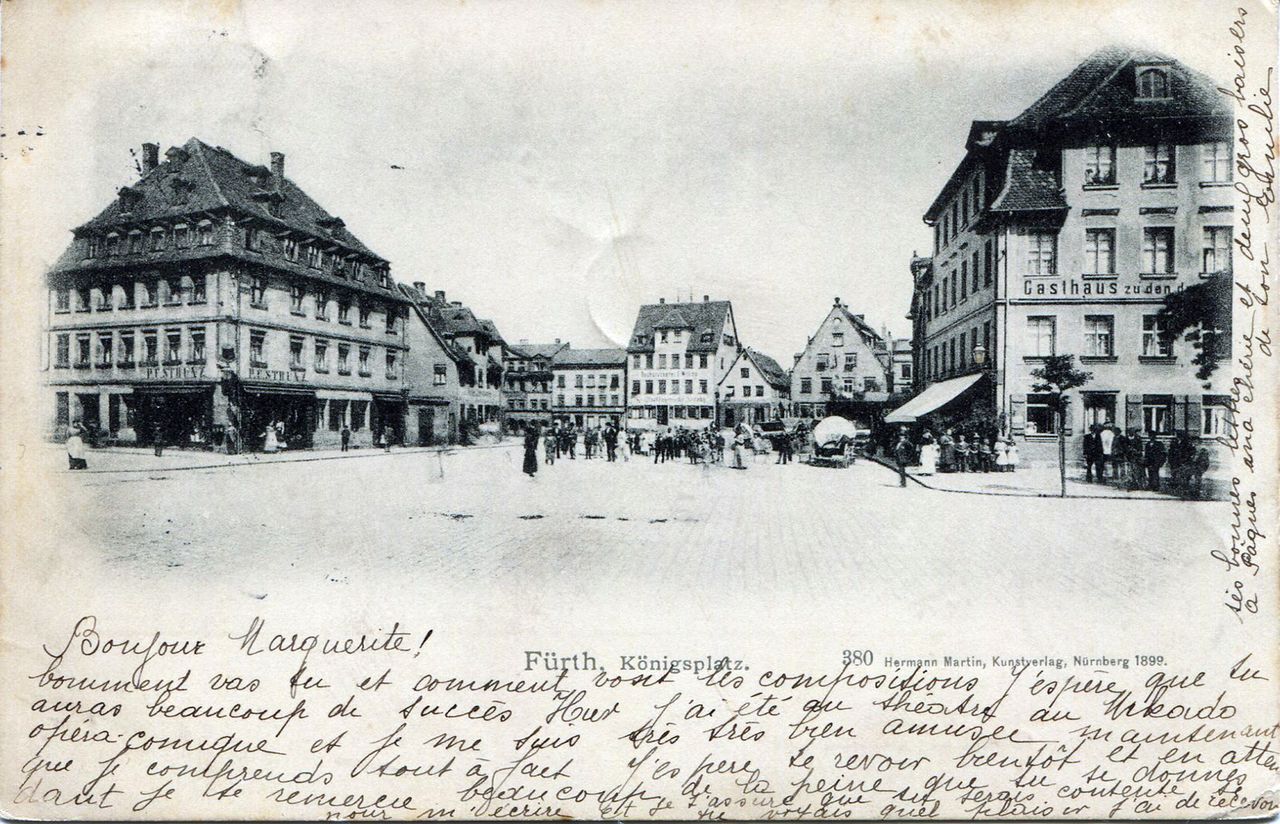 P. STRUNZ
P. STRUNZ
Gasthaus zu den d
Fürth, Königsplatz.
380 Hermann Martin, Kunstverlag, Nürnberg 1899.
Bonjour Marguerite!
Comment vas tu et comment vont tes compositions J'espère que tu
auras beaucoup de succès Hier j'ai été au théatre au Mikado
opéra-comique et je me suis très très bien amusée maintenant
que je comprends tout à fait J'espère te revoir bientôt et en atten
dant je te remercie beaucoup de la peine que tu te donnes
pour m'écrire Et je t'assure que tu serais contente si
tu voyais quel plaisir j'ai de recevoir
tes bonnes lettres et deux gros baisers
à Pâques ma chérie
de ton Emilie